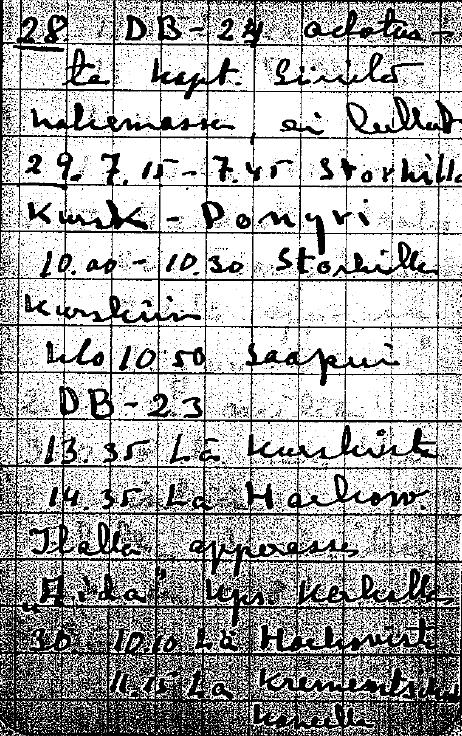 28 DB-24 odotus-
ta kapt. Siirilä
hakemassa, ei tullut
29. 7.15-7.45 Storhilla
Kursk - Ponyri
10.00-10.30 Storhilla
Kurskiin
klo 10 50 saapui
DB-23
13.35 Lä Kurskista
14.35 La Harkow.
Illalla opperassa
„Aida" kps.
30. 10.10 Lä Harkovista
11.15 La Krementschuk
koneella